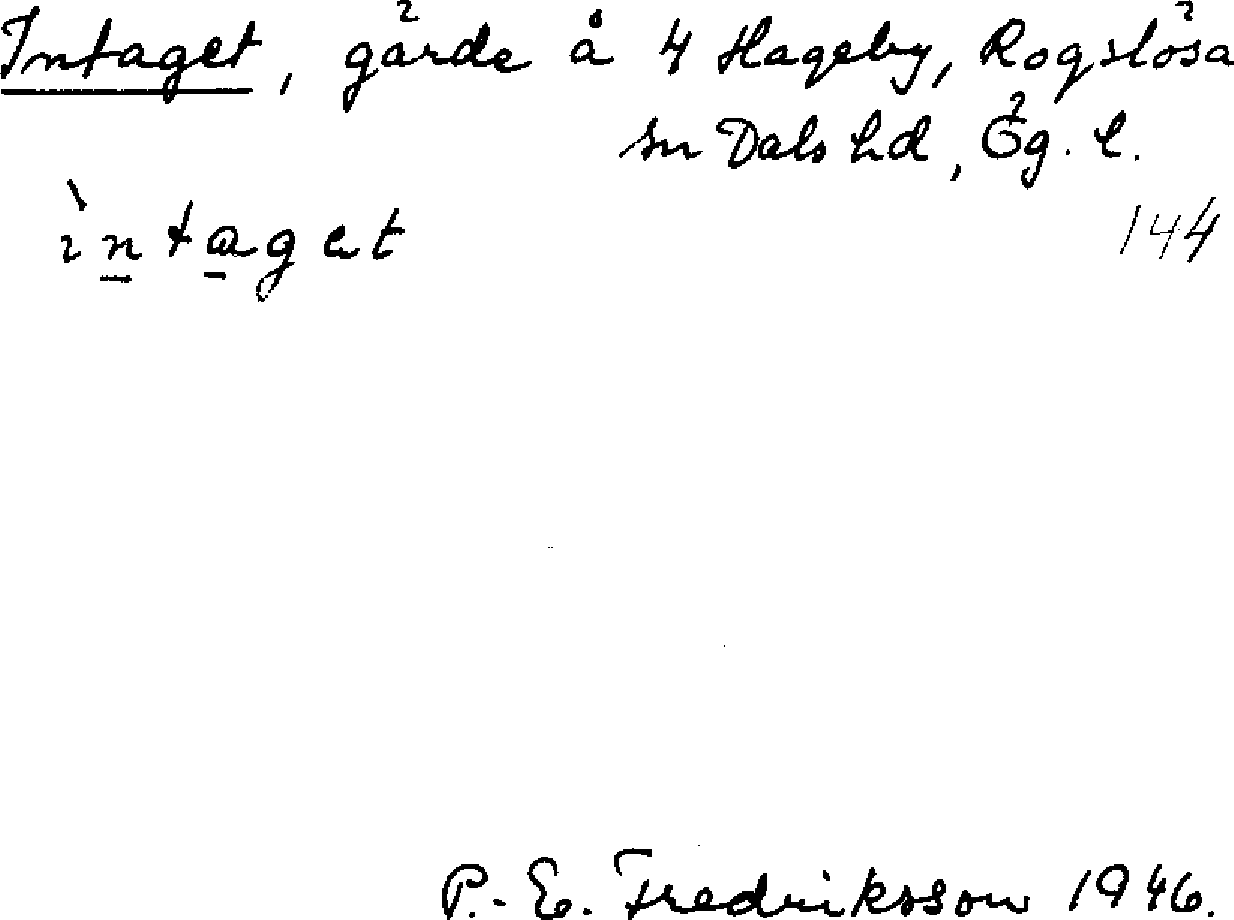 Intaget, gärde å 4 Hageby, Rogslösa
sn Dals hd, Ög. l.
ìntaget
144
P.-E. Fredriksson 1946.